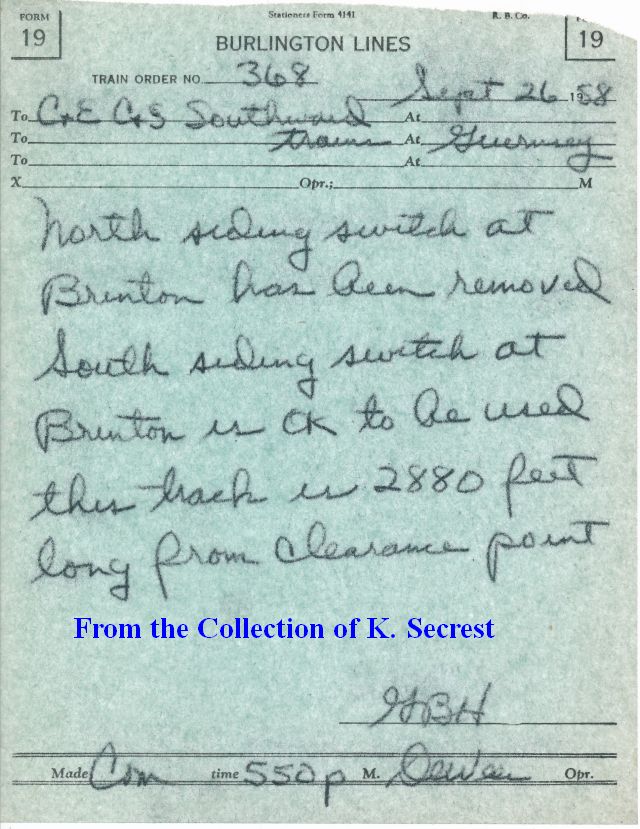 FORM 19 Stationers Form 4141 R. B. Co. 19
BURLINGTON LINES
TRAIN ORDER NO. 368
Sept 26 1958
To C+E C+S Southward At
To trains At Guernsey
To At
X Opr.; M
North siding switch at
Brinton has been removed
South siding switch at
Brinton is OK to be used
this track is 2880 feet
long from clearance point
From the Collection of K. Secrest
GBH
Made Com time 550p M. Opr.